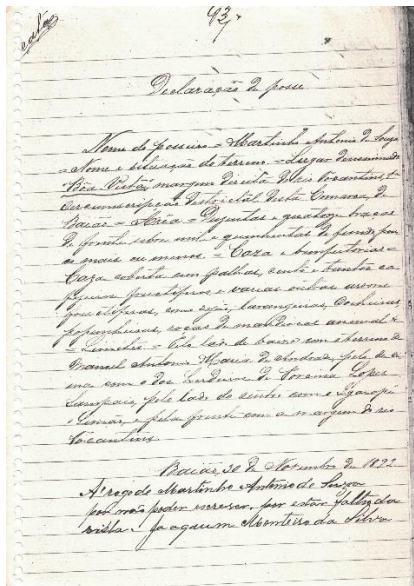 cata
43,
Declaração de posse
Nome do posseiro = Martinho Antonio de Souza
= Nome e situação do terreno = Lugar denominado
Bôa Vista, margem direita do rio Tocantins, 1ª
circumscripção districtal desta Comarca de
Baião = Area = Duzentas e quatorze braças
de frente sobre mil e quinhentas de fundo, pou
co mais ou menos = Caza e bemfeitorias =
Caza coberta com palhas, cento e tantos ca
fructiferos e varias outras arvores
fructiferas, como sejão, larangeiras,
roças de mandiocas annual &
= Limites = Pelo lado de baixo com o terreno de
Manoel Antonio Maria de Andrade, pelo de ci
ma com o dos herdeiros de Lopes
Sampaio, pelo lado do centro com o Igarapé
Limão, e pela frente com a margem do rio
Tocantins.
Baião, 30 de Novembro de 1892
A rogo de Martinho Antonio de Souza
por não poder escrever, por estar falto da
vista. Joaquim Monteiro da Silva